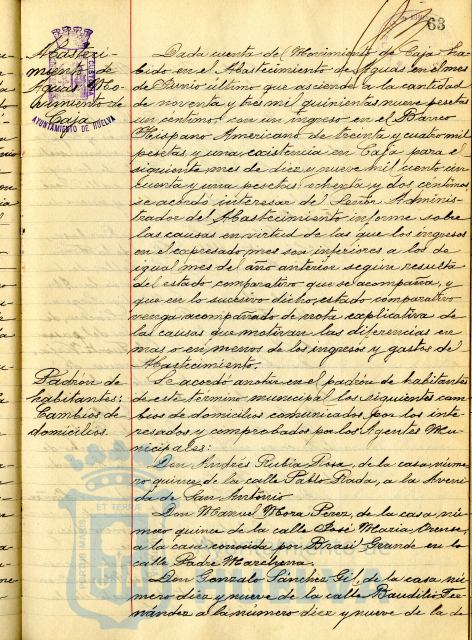 63
Abasteci-
miento de
Aguas Mo-
vimiento de
Caja
AYUNTAMIENTO DE HUELVA
Dada cuenta de Movimiento de Caja ha-
bido en el Abastecimiento de Aguas en el mes
de Junio último que asciende a la cantidad
de noventa y tres mil quinientas nueve pesetas
un centimos con un ingreso en el Banco
Hispano Americano de treinta y cuatro mil
pesetas y una existencia en Caja para el
siguiente mes de diez y nueve mil ciento cin-
cuenta y una pesetas ochenta y dos centimos
se acordó interesar del Señor Adminis-
trador del Abastecimiento informe sobre
las causas en virtud de las que los ingresos
en el expresado mes son inferiores a los de
igual mes de año anterior según resulta
del estado comparativo que se acompaña, y
que en lo sucesivo dicho estado comparativo
venga acompañado de nota explicativa de
las causas que motivan las diferencias en
mas o en menos de los ingresos y gastos del
Abastecimiento.
Padrón de
habitantes:
Cambios de
domicilios.
Se acordó anotar en el padrón de habitantes
de este término municipal los siguientes cam-
bios de domicilios comunicados por los inte-
resados y comprobados por los Agentes Mu-
nicipales:
Don Andrés Rubia Rosa, de la casa núme-
ro quince de la calle Pablo Rada, a la Aveni-
da de San Antonio
Don Manuel Mora Perez, de la casa nú-
mero quince de la calle José Maria Orense,
a la casa conocida por Brasil Grande en la
calle Padre Marchena.
Don Gonzalo Sánchez Gil, de la casa nú-
mero diez y nueve de la calle Baudilio Fer-
nández a la número diez y nueve de la de